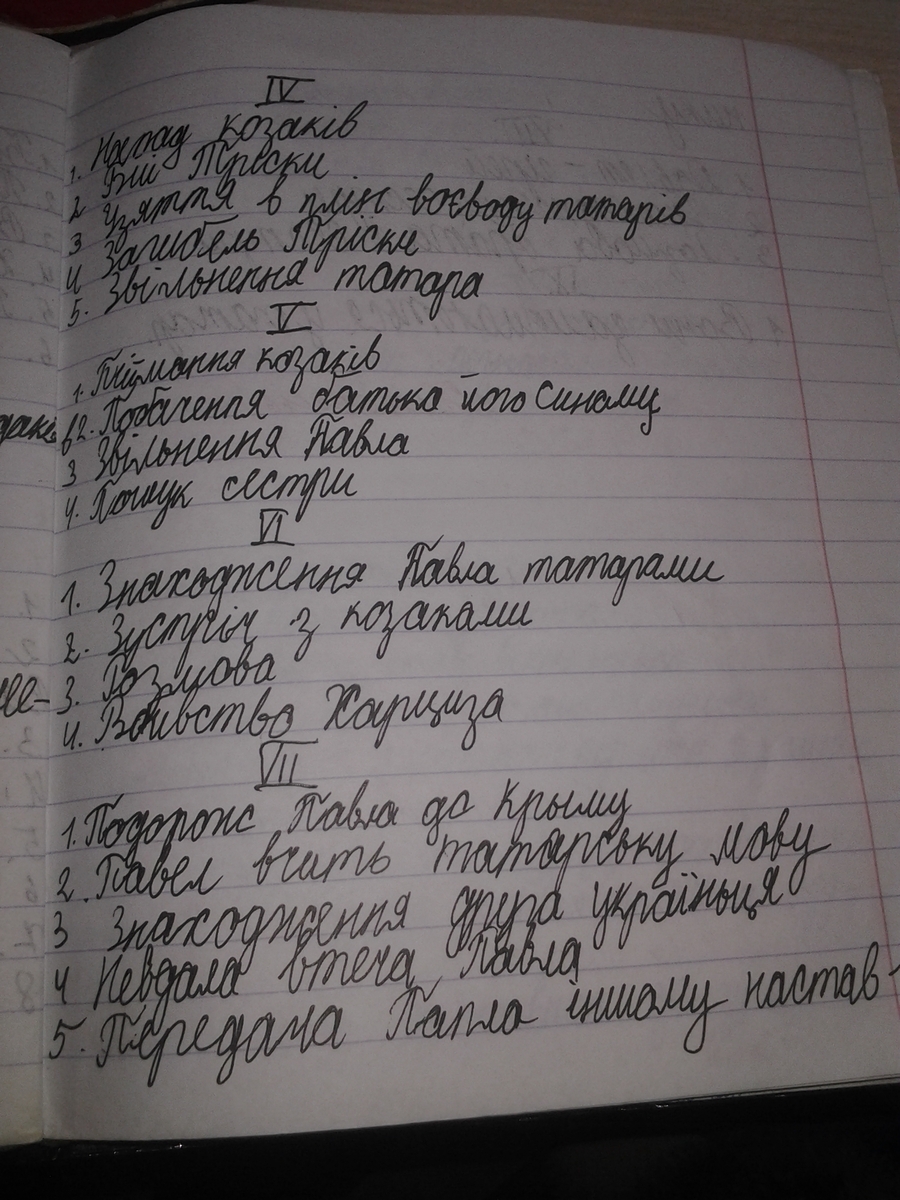 IV
1. Напад козаків
2 Бій Тріски
3 Узяття в плін воєводу татарів
4 Загибель Тріски
5. Звільнення татара
V
1. Піймання козаків
2. Побачення батька його синому
3 Звільнення Павла
4. Пошук сестри
VI
1. Знаходження Павла татарами
2. Зустріч з козаками
3. Розмова
4. Вбивство Харциза
VII
1. Подорож Павла до Крыму
2. Павел вчить татарську мову
3 Знаходження друга україньця
4 Невдала втеча Павла
5. Передача Папла іншому настав-